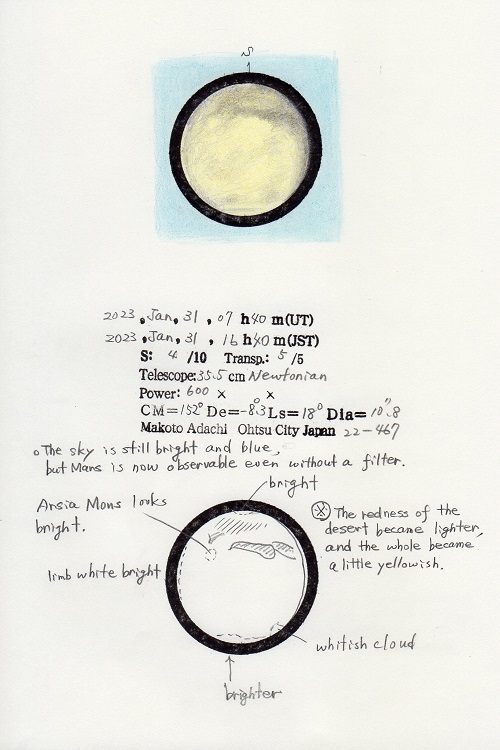 S
2023, Jan, 31, 07 h 40 m (UT)
2023, Jan, 31, 16 h 40 m (JST)
S: 4 /10 Transp.: 5 /5
Telescope: 35.5 cm Newtonian
Power: 600 × ×
CM=152° De=-8.°3 Ls=18° Dia=10".8
Makoto Adachi Ohtsu City Japan 22-467
o The sky is still bright and blue,
but Mars is now observable even without a filter.
bright
Arsia Mons looks
bright.
※ The redness of the
desert became lighter,
and the whole became
a little yellowish.
limb white bright
whitish cloud
brighter